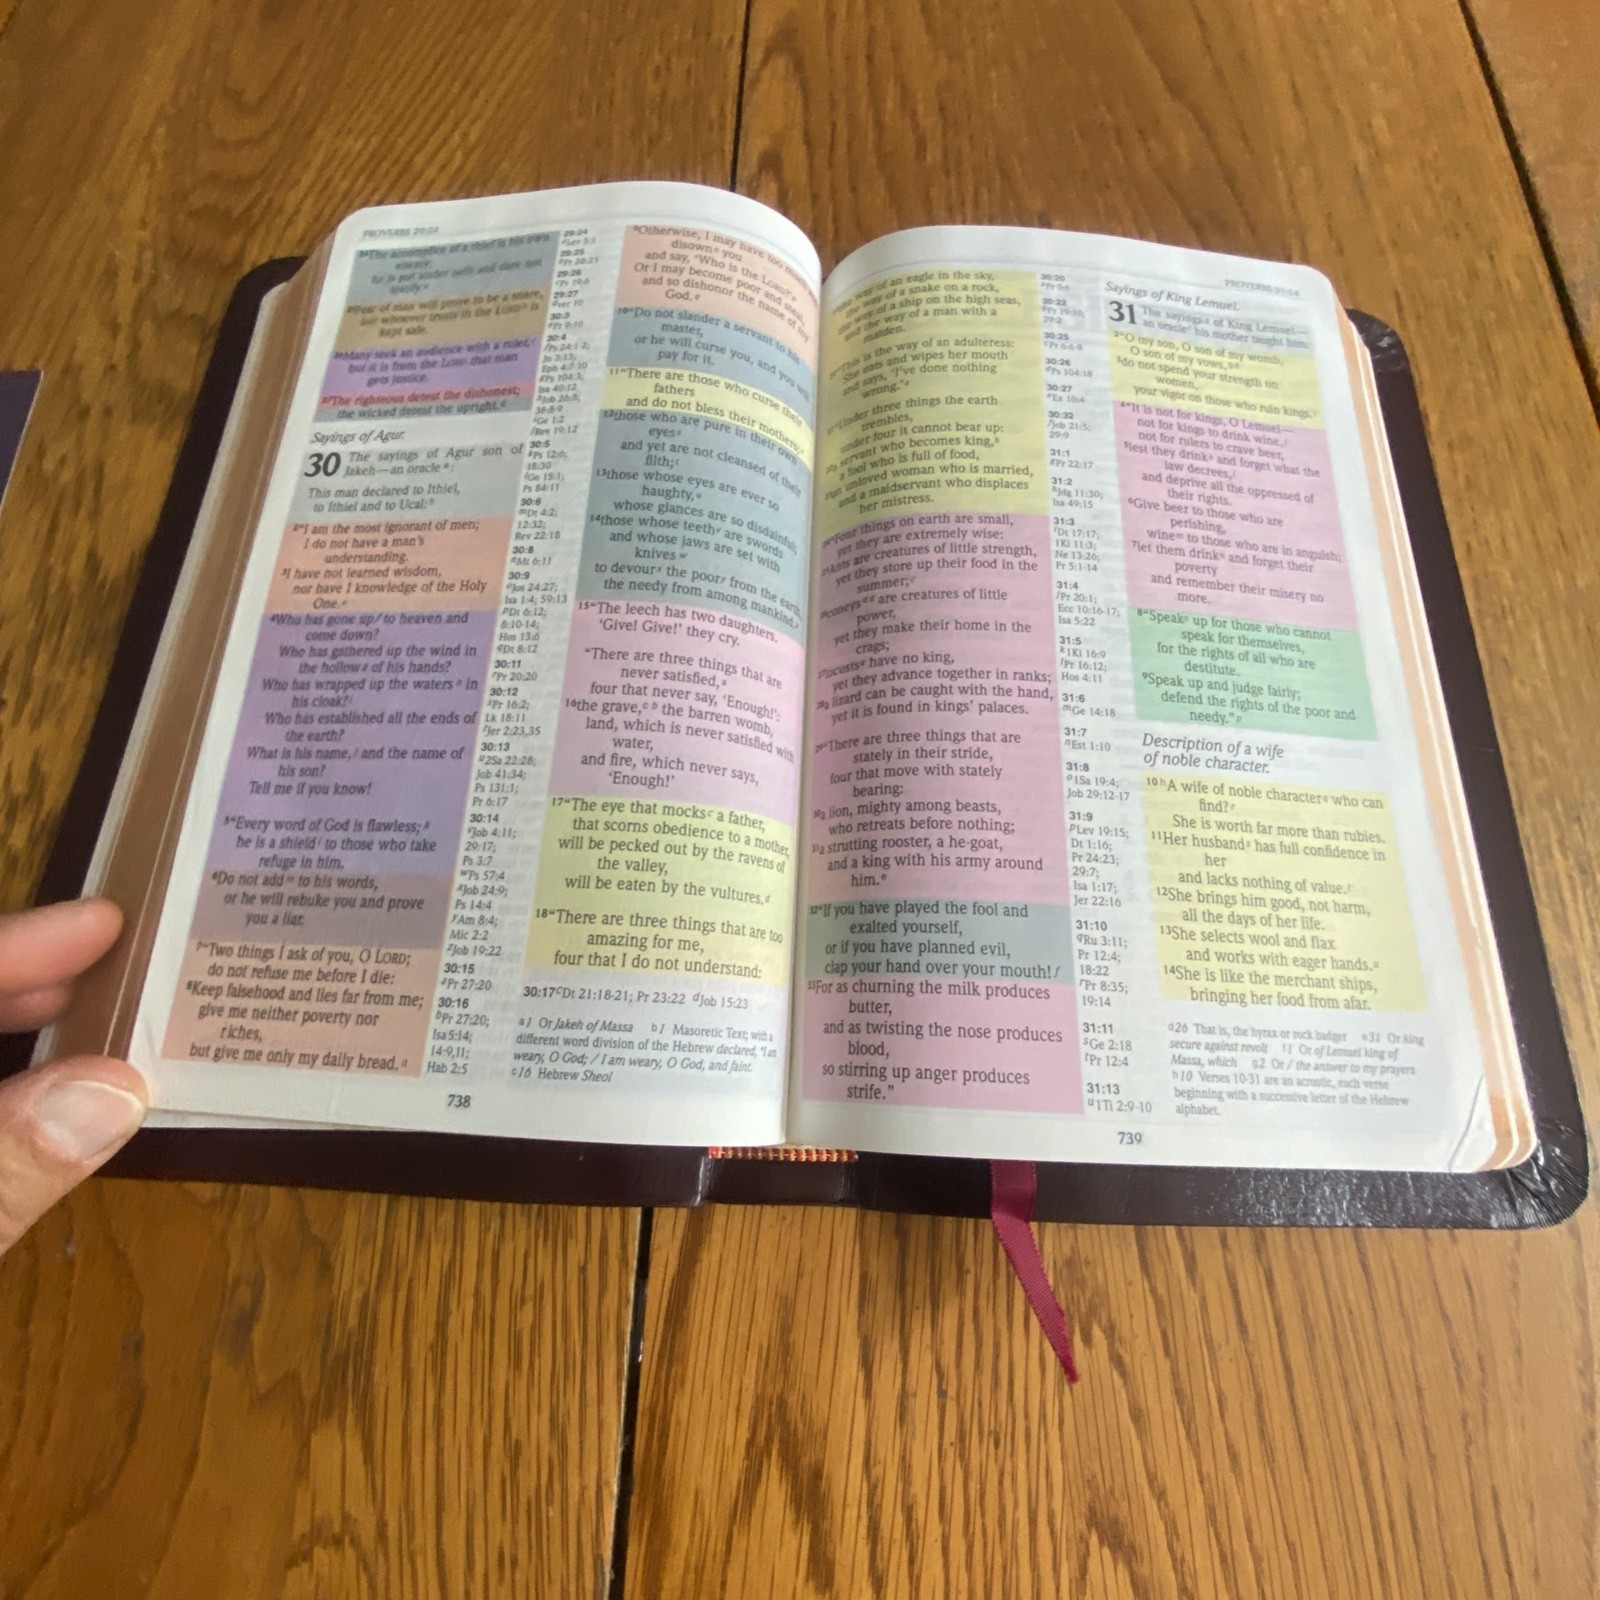 PROVERBS 29:24
24The accomplice of a thief is his own
enemy;
he is put under oath and dare not
testify.
25Fear of man will prove to be a snare,
but whoever trusts in the LORD is
kept safe.
26Many seek an audience with a ruler,
but it is from the LORD that man
gets justice.
27The righteous detest the dishonest;
the wicked detest the upright.
Sayings of Agur
30 The sayings of Agur son of
Jakeh—an oracle a:
This man declared to Ithiel,
to Ithiel and to Ucal: b
2“I am the most ignorant of men;
I do not have a man's
understanding.
3I have not learned wisdom,
nor have I knowledge of the Holy
One.
4Who has gone up to heaven and
come down?
Who has gathered up the wind in
the hollow of his hands?
Who has wrapped up the waters in
his cloak?
Who has established all the ends of
the earth?
What is his name, and the name of
his son?
Tell me if you know!
5“Every word of God is flawless;
he is a shield to those who take
refuge in him.
6Do not add to his words,
or he will rebuke you and prove
you a liar.
7“Two things I ask of you, O LORD;
do not refuse me before I die:
8Keep falsehood and lies far from me;
give me neither poverty nor
riches,
but give me only my daily bread.
29:24
29:25
29:26
29:27
30:3
Pr 9:10
30:4
30:5
Ps 12:6;
18:30
Ge 15:1;
Ps 84:11
30:6
Dt 4:2;
12:32;
Rev 22:18
30:8
Mt 6:11
30:9
Jos 24:27;
Isa 1:4; 59:13
Dt 6:12;
8:10-14;
Hos 13:6
Dt 8:12
30:11
Pr 20:20
30:12
Pr 16:2;
Lk 18:11
Jer 2:23,35
30:13
2Sa 22:28;
Job 41:34;
Ps 131:1;
Pr 6:17
30:14
Job 4:11;
29:17;
Ps 3:7
Ps 57:4
Job 24:9;
Ps 14:4
Am 8:4;
Mic 2:2
Job 19:22
30:15
Pr 27:20
30:16
Pr 27:20;
Isa 5:14;
14:9,11;
Hab 2:5
9Otherwise, I may have too much
disown you
and say, ‘Who is the LORD?’
Or I may become poor and steal,
and so dishonor the name of my
God.
10“Do not slander a servant to his
master,
or he will curse you, and you will
pay for it.
11“There are those who curse their
fathers
and do not bless their mothers;
12those who are pure in their own
eyes
and yet are not cleansed of their
filth;
13those whose eyes are ever so
haughty,
whose glances are so disdainful;
14those whose teeth are swords
and whose jaws are set with
knives
to devour the poor from the earth,
the needy from among mankind.
15“The leech has two daughters.
‘Give! Give!’ they cry.
“There are three things that are
never satisfied,
four that never say, ‘Enough!’:
16the grave, c b the barren womb,
land, which is never satisfied with
water,
and fire, which never says,
‘Enough!’
17“The eye that mocks a father,
that scorns obedience to a mother,
will be pecked out by the ravens of
the valley,
will be eaten by the vultures.
18“There are three things that are too
amazing for me,
four that I do not understand:
30:17 cDt 21:18-21; Pr 23:22 dJob 15:23
a1 Or Jakeh of Massa b1 Masoretic Text; with a
different word division of the Hebrew declared, “I am
weary, O God; / I am weary, O God, and faint.
c16 Hebrew Sheol
738
PROVERBS 31:14
the way of an eagle in the sky,
the way of a snake on a rock,
the way of a ship on the high seas,
and the way of a man with a
maiden.
20“This is the way of an adulteress:
She eats and wipes her mouth
and says, ‘I've done nothing
wrong.’
21“Under three things the earth
trembles,
under four it cannot bear up:
22a servant who becomes king,
a fool who is full of food,
23an unloved woman who is married,
and a maidservant who displaces
her mistress.
24“Four things on earth are small,
yet they are extremely wise:
25Ants are creatures of little strength,
yet they store up their food in the
summer;
26coneys are creatures of little
power,
yet they make their home in the
crags;
27locusts have no king,
yet they advance together in ranks;
28a lizard can be caught with the hand,
yet it is found in kings' palaces.
29“There are three things that are
stately in their stride,
four that move with stately
bearing:
30a lion, mighty among beasts,
who retreats before nothing;
31a strutting rooster, a he-goat,
and a king with his army around
him.
32“If you have played the fool and
exalted yourself,
or if you have planned evil,
clap your hand over your mouth!
33For as churning the milk produces
butter,
and as twisting the nose produces
blood,
so stirring up anger produces
strife.”
30:20
Pr 5:6
30:22
Pr 19:10;
29:2
30:25
Pr 6:6-8
30:26
Ps 104:18
30:27
Ex 10:4
30:32
Job 21:5;
29:9
31:1
Pr 22:17
31:2
Jdg 11:30;
Isa 49:15
31:3
Dt 17:17;
1Ki 11:3;
Ne 13:26;
Pr 5:1-14
31:4
Pr 20:1;
Ecc 10:16-17;
Isa 5:22
31:5
1Ki 16:9
Pr 16:12;
Hos 4:11
31:6
Ge 14:18
31:7
Est 1:10
31:8
1Sa 19:4;
Job 29:12-17
31:9
Lev 19:15;
Dt 1:16;
Pr 24:23;
29:7;
Isa 1:17;
Jer 22:16
31:10
Ru 3:11;
Pr 12:4;
18:22
Pr 8:35;
19:14
31:11
Ge 2:18
Pr 12:4
31:13
1Ti 2:9-10
Sayings of King Lemuel
31 The sayings of King Lemuel—
an oracle his mother taught him:
2“O my son, O son of my womb,
O son of my vows,
3do not spend your strength on
women,
your vigor on those who ruin kings.
4“It is not for kings, O Lemuel—
not for kings to drink wine,
not for rulers to crave beer,
5lest they drink and forget what the
law decrees,
and deprive all the oppressed of
their rights.
6Give beer to those who are
perishing,
wine to those who are in anguish;
7let them drink and forget their
poverty
and remember their misery no
more.
8“Speak up for those who cannot
speak for themselves,
for the rights of all who are
destitute.
9Speak up and judge fairly;
defend the rights of the poor and
needy.”
Description of a wife
of noble character.
10 h A wife of noble character who can
find?
She is worth far more than rubies.
11Her husband has full confidence in
her
and lacks nothing of value.
12She brings him good, not harm,
all the days of her life.
13She selects wool and flax
and works with eager hands.
14She is like the merchant ships,
bringing her food from afar.
d26 That is, the hyrax or rock badger e31 Or king
secure against revolt f1 Or of Lemuel king of
Massa, which g2 Or / the answer to my prayers
h10 Verses 10-31 are an acrostic, each verse
beginning with a successive letter of the Hebrew
alphabet.
739